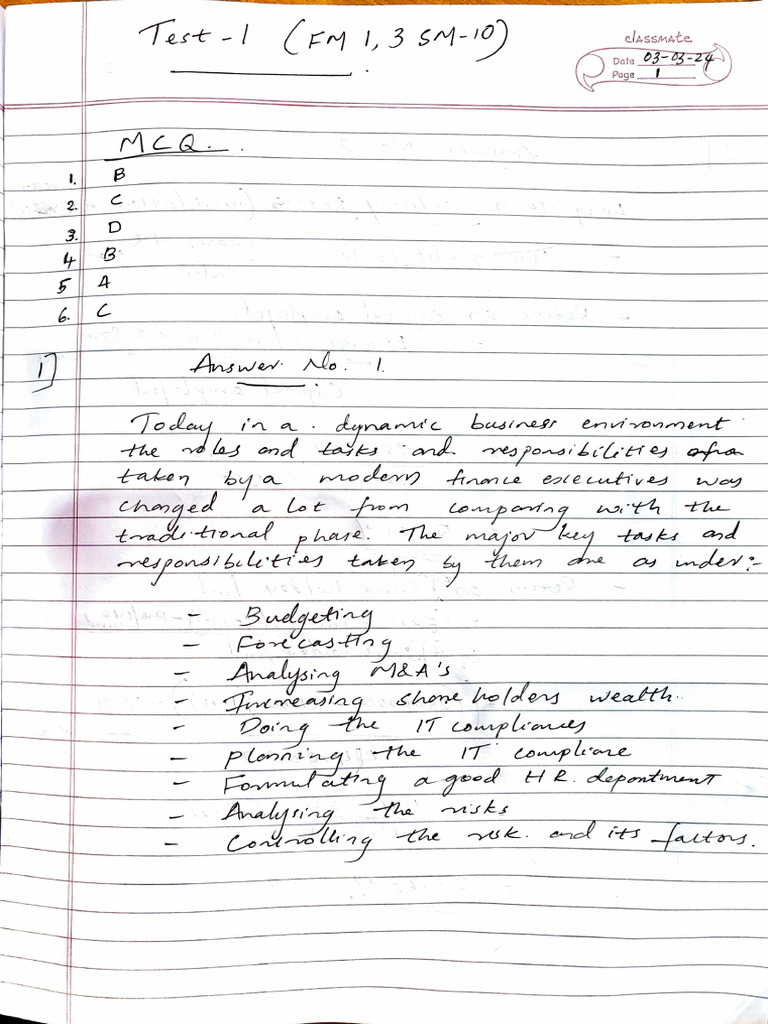 Test-1 (FM 1, 3 SM-10)
classmate
Date 03-03-24
Page 1
MCQ.
1. B
2. C
3. D
4 B
5 A
6. C
1] Answer No. 1.
Today in a dynamic business environment
the roles and tasks and responsibilities
taken by a modern finance executives was
changed a lot from comparing with the
traditional phase. The major key tasks and
responsibilities taken by them are as under:-
- Budgeting
- Forecasting
- Analysing M&A's
- Increasing shareholders wealth.
- Doing the IT compliances
- Planning the IT compliance
- Formulating a good HR. department
- Analysing the risks
- Controlling the risk. and its factors.